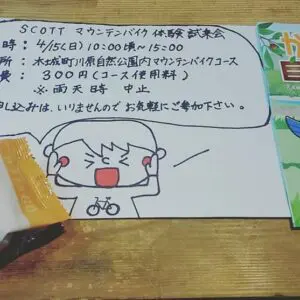 SCOTT マウンテンバイク 体験試乗会
時: 4/15(日) 10:00頃~15:00
所: 木城町川原自然公園内マウンテンバイクコース
費: 300円(コース使用料)
※ 雨天時 中止
し込みは、いりませんので お気軽にご参加下さい。